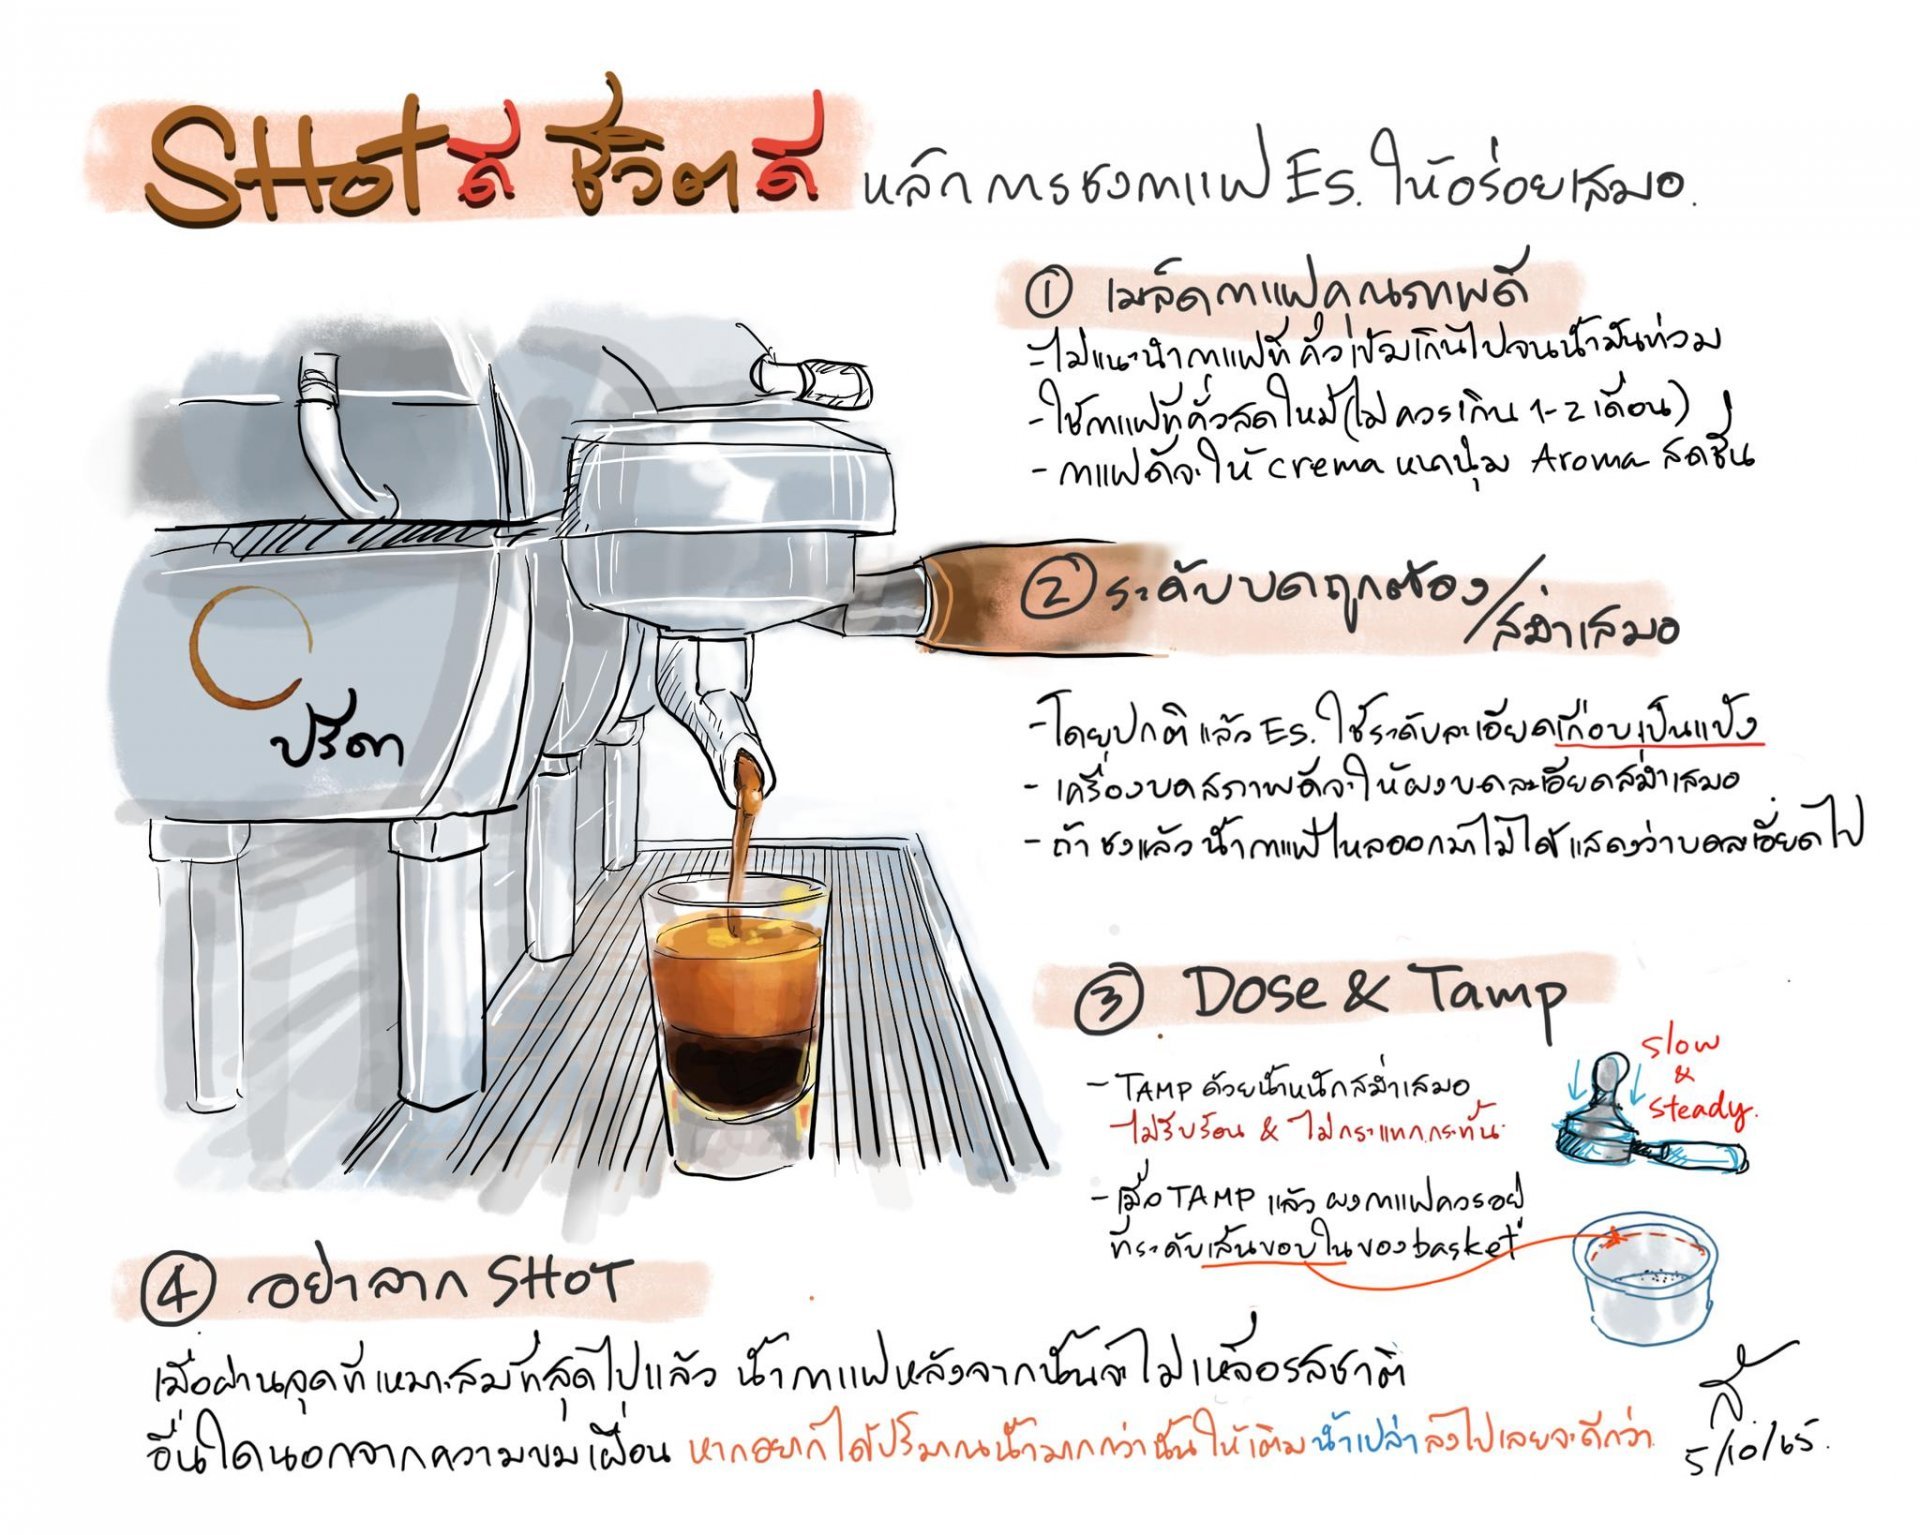 SHOT ดี ชีวิตดี หลักการชงกาแฟ Es. ให้อร่อยเสมอ.
① เมล็ดกาแฟคุณภาพดี
- ไม่แนะนำกาแฟที่คั่วเข้มเกินไปจนน้ำมันท่วม
- ใช้กาแฟที่คั่วสดใหม่ (ไม่ควรเกิน 1-2 เดือน)
- กาแฟดีจะให้ crema หนานุ่ม Aroma สดชื่น
② ระดับบดถูกต้อง/
สม่ำเสมอ
- โดยปกติแล้ว Es. ใช้ระดับละเอียดเกือบเป็นแป้ง
- เครื่องบดสภาพดีจะให้ผงบดละเอียดสม่ำเสมอ
- ถ้าชงแล้วน้ำกาแฟไหลออกมาไม่ได้แสดงว่าบดละเอียดไป
ปรีดา
③ Dose & Tamp
- TAMP ด้วยน้ำหนักสม่ำเสมอ
ไม่รีบร้อน & ไม่กระแทกกระทั้น
slow
&
steady.
- เมื่อ TAMP แล้ว ผงกาแฟควรอยู่
ที่ระดับเส้นขอบในของ basket
④ อย่าลาก SHOT
เมื่อผ่านจุดที่เหมาะสมที่สุดไปแล้ว น้ำกาแฟหลังจากนั้นจะไม่เหลือรสชาติ
อื่นใดนอกจากความขมเฝื่อน หากอยากได้ปริมาณน้ำมากกว่านั้นให้เติมน้ำเปล่าลงไปเลยจะดีกว่า
5/10/65.